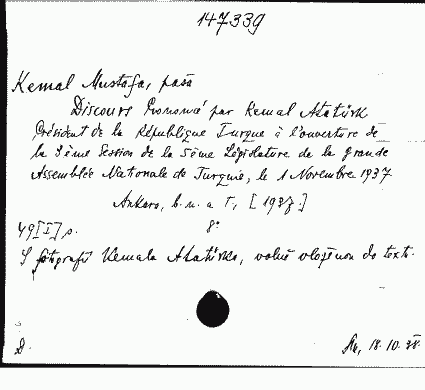 147339
Kemal Mustafa, paša
Discours Prononcé par Kemal Atatürk
Président de la République Turque à l'ouverture de
la 3ème Session de la 5ème Législature de la grande
Assemblée Nationale de Turquie, le 1 Novembre 1937
Ankara, b. n. a T., [1937.]
49[I] s. 8°
S fotografií Kemala Atatürka, volně vloženou do textu.
D. 18.10.38.